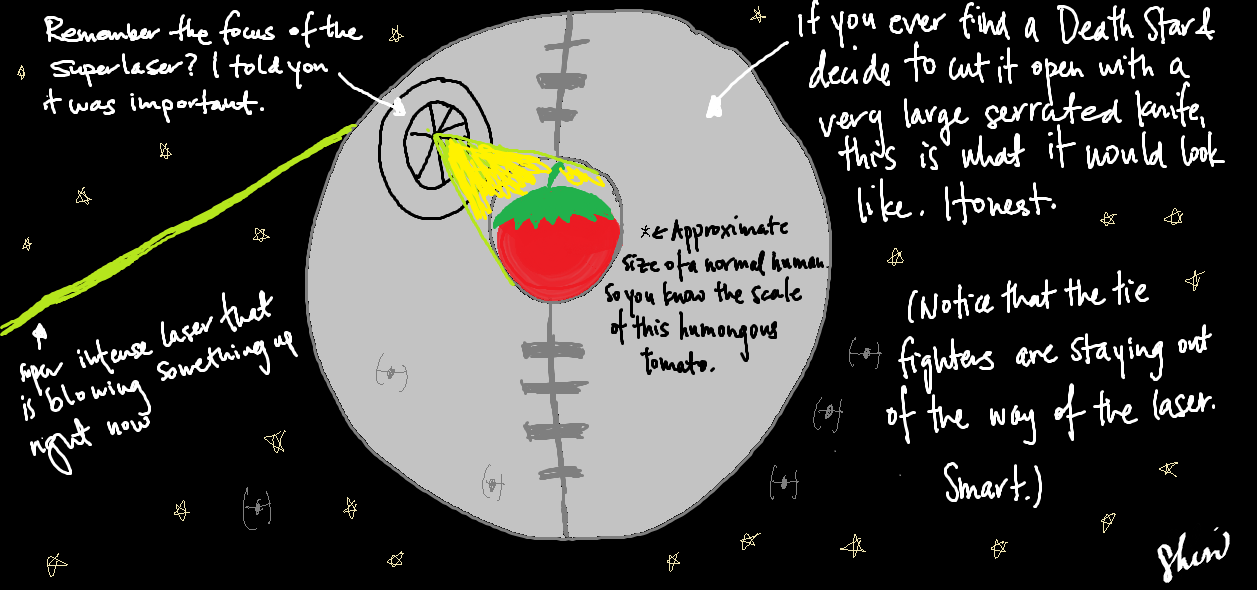 Remember the focus of the
superlaser? I told you
it was important.
If you ever find a Death Star &
decide to cut it open with a
very large serrated knife,
this is what it would look
like. Honest.
*← Approximate
size of a normal human
so you know the scale
of this humongous
tomato.
super intense laser that
is blowing something up
right now
(Notice that the tie
fighters are staying out
of the way of the laser.
Smart.)